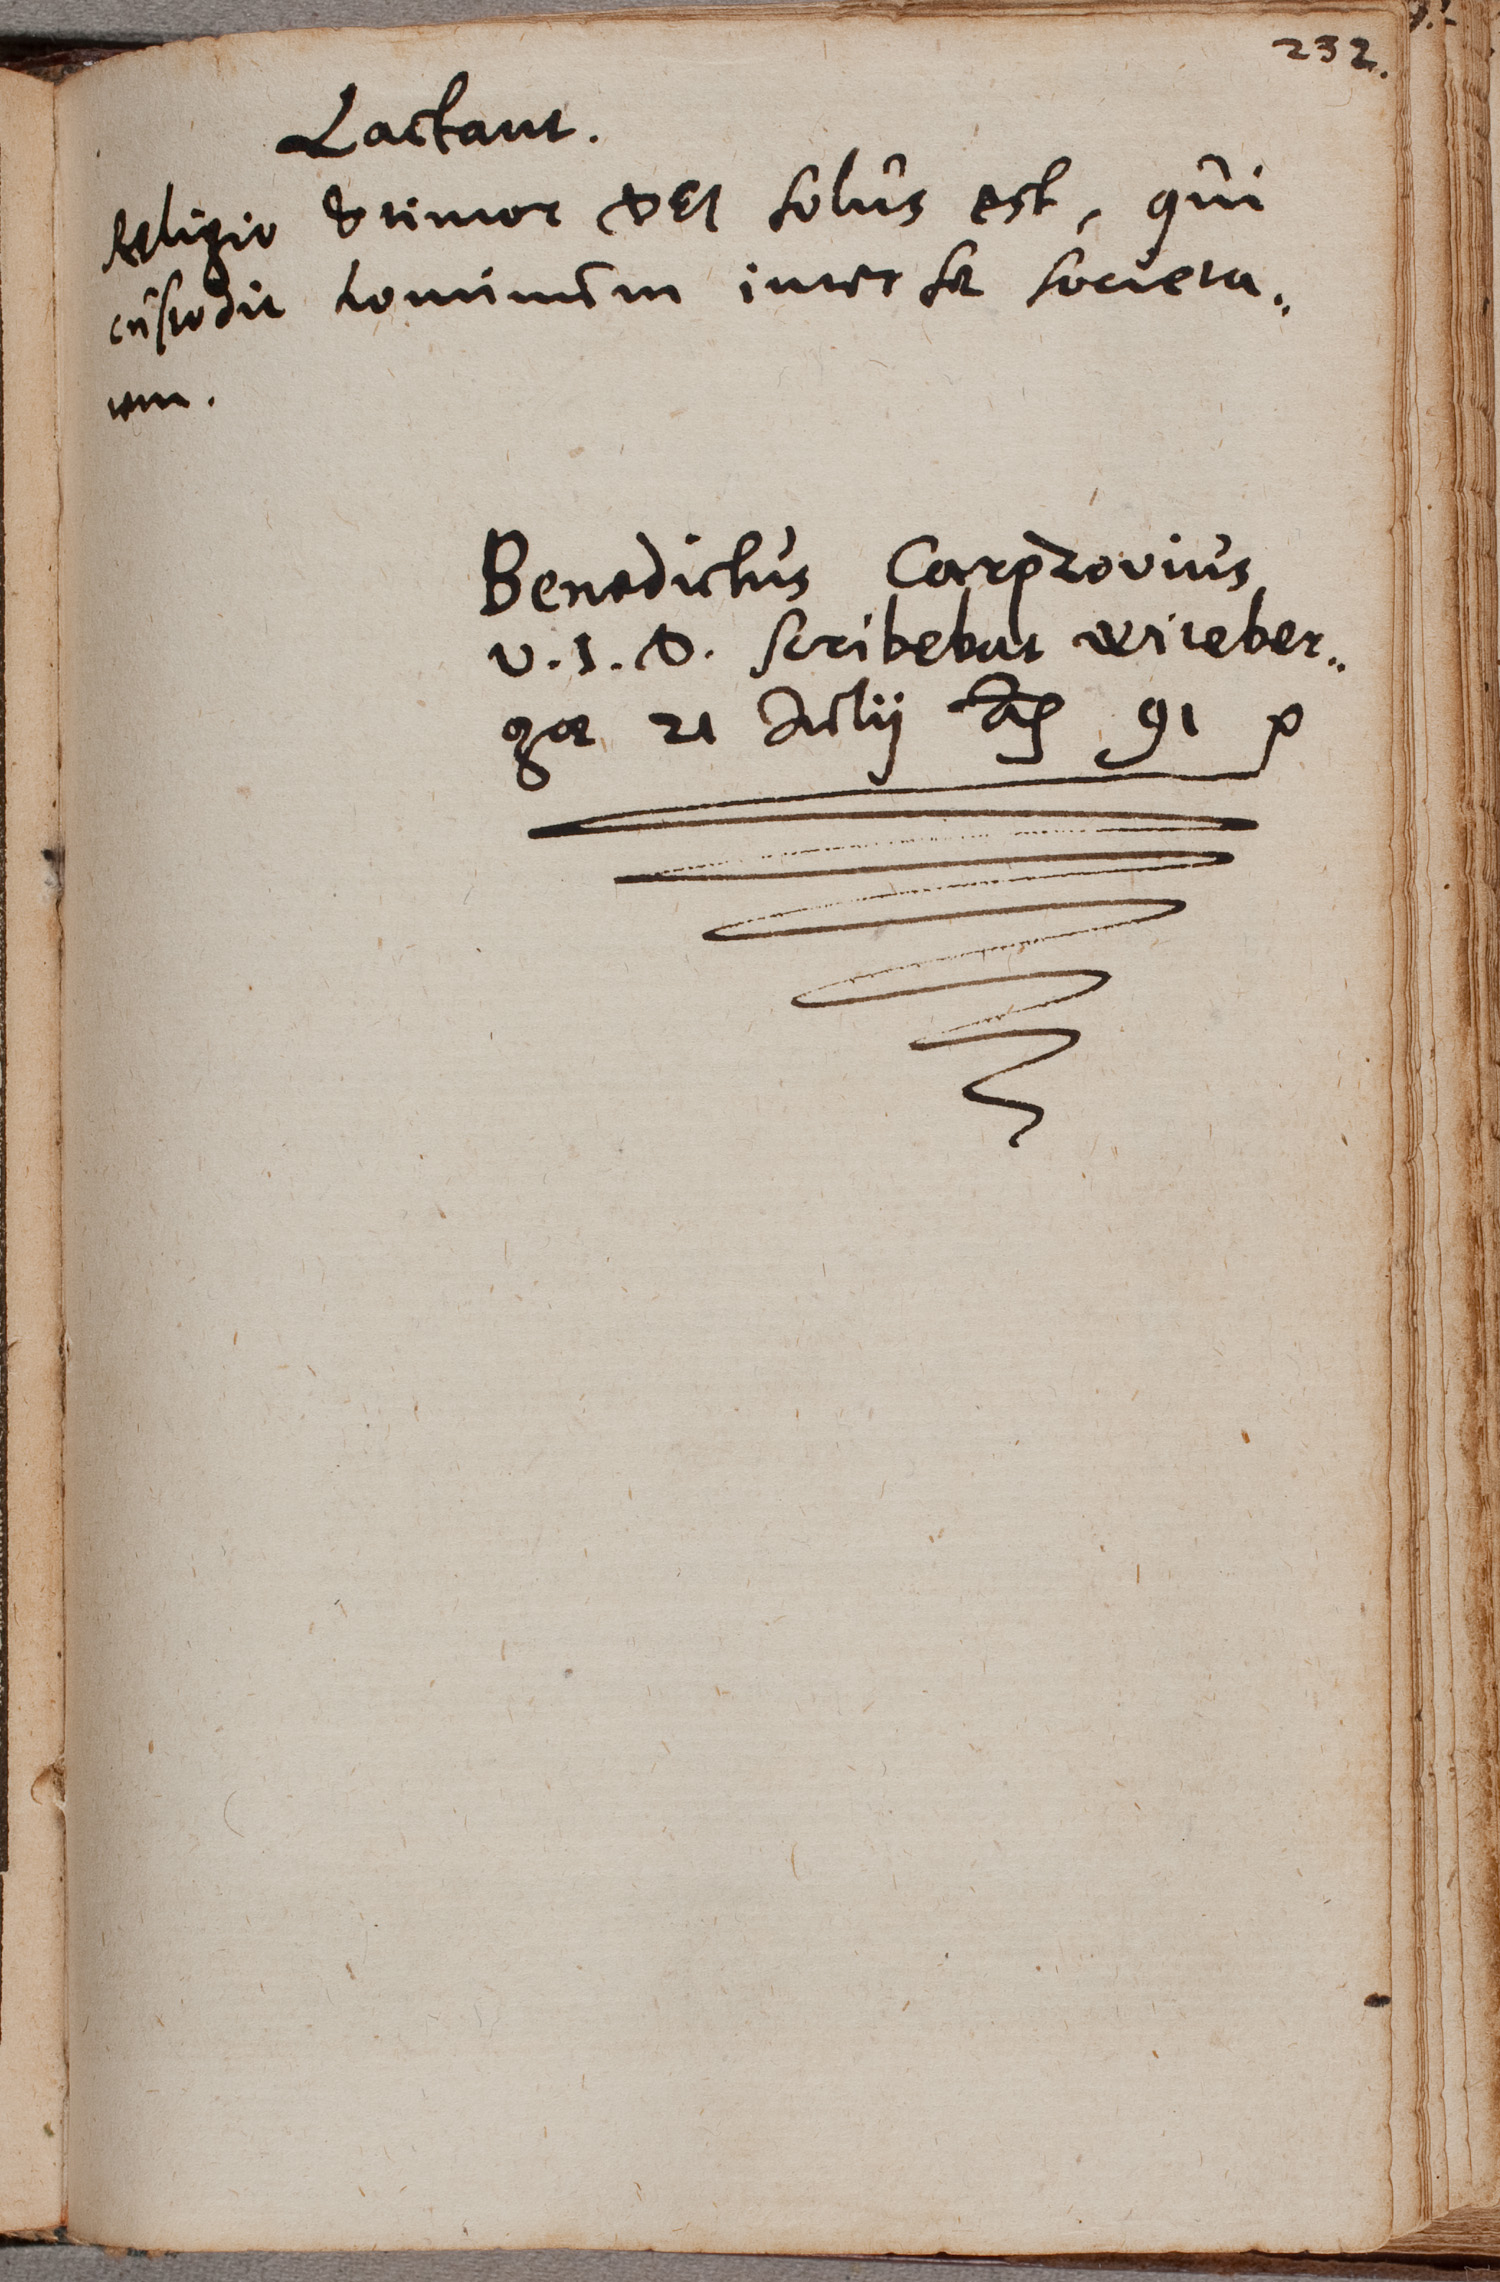 232.
Lactant.
Religio & timor DEI solus est, qui
custodit hominum inter se societa„
tem.
Benedictus Carpzovius
V. I. D. scribebat Witeber„
gae 21 Julij 91